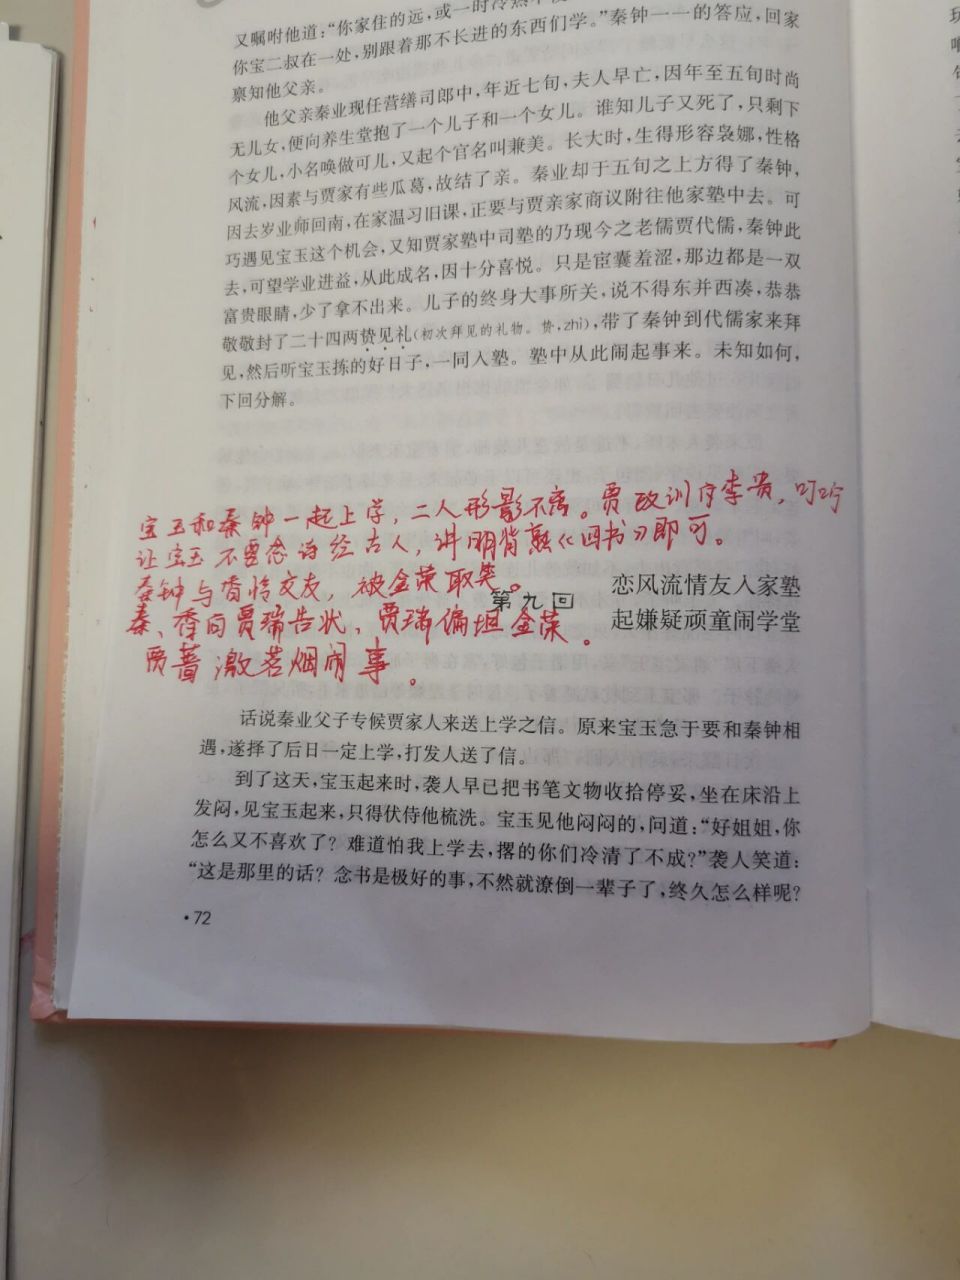 又嘱咐他道：“你家住的远，或一时冷热不
你宝二叔在一处，别跟着那不长进的东西们学。”秦钟一一的答应，回家
禀知他父亲。
他父亲秦业现任营缮司郎中，年近七旬，夫人早亡，因年至五旬时尚
无儿女，便向养生堂抱了一个儿子和一个女儿。谁知儿子又死了，只剩下
个女儿，小名唤做可儿，又起个官名叫兼美。长大时，生得形容袅娜，性格
风流，因素与贾家有些瓜葛，故结了亲。秦业却于五旬之上方得了秦钟，
因去岁业师回南，在家温习旧课，正要与贾亲家商议附往他家塾中去。可
巧遇见宝玉这个机会，又知贾家塾中司塾的乃现今之老儒贾代儒，秦钟此
去，可望学业进益，从此成名，因十分喜悦。只是宦囊羞涩，那边都是一双
富贵眼睛，少了拿不出来。儿子的终身大事所关，说不得东并西凑，恭恭
敬敬封了二十四两贽见礼（初次拜见的礼物。贽，zhì），带了秦钟到代儒家来拜
见，然后听宝玉拣的好日子，一同入塾。塾中从此闹起事来。未知如何，
下回分解。
宝玉和秦钟一起上学，二人形影不离。贾政训斥李贵，叮咛
让宝玉不要念诗经古人，讲明背熟《四书》即可。
秦钟与香怜交友，被金荣取笑。
秦、香向贾瑞告状，贾瑞偏坦金荣。
贾蔷激茗烟闹事。
第九回
恋风流情友入家塾
起嫌疑顽童闹学堂
话说秦业父子专候贾家人来送上学之信。原来宝玉急于要和秦钟相
遇，遂择了后日一定上学，打发人送了信。
到了这天，宝玉起来时，袭人早已把书笔文物收拾停妥，坐在床沿上
发闷，见宝玉起来，只得伏侍他梳洗。宝玉见他闷闷的，问道：“好姐姐，你
怎么又不喜欢了？难道怕我上学去，撂的你们冷清了不成？”袭人笑道：
“这是那里的话？念书是极好的事，不然就潦倒一辈子了，终久怎么样呢？
·72